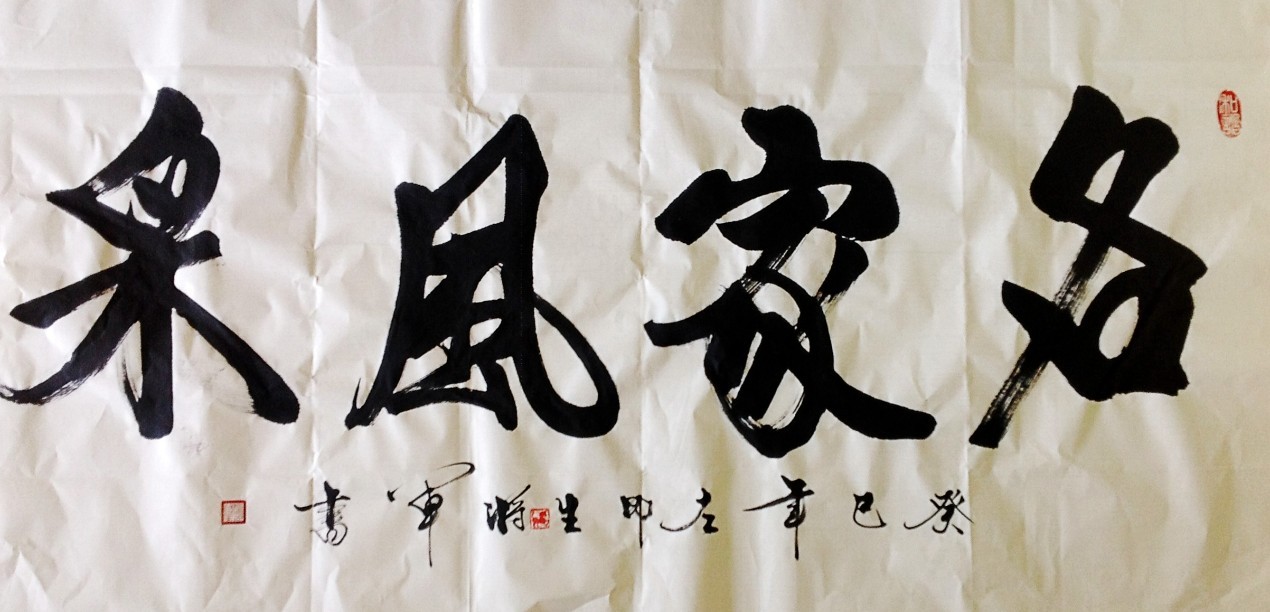 名家風采
癸巳年左印生將軍書